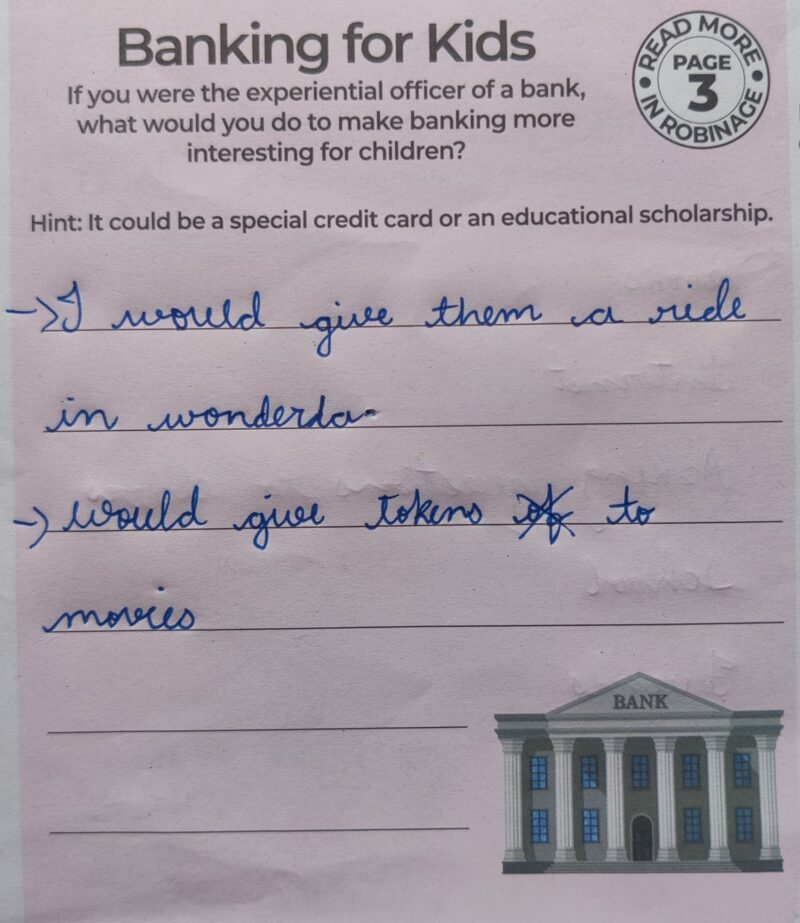 Banking for Kids
READ MORE
PAGE
3
IN ROBINAGE
If you were the experiential officer of a bank,
what would you do to make banking more
interesting for children?
Hint: It could be a special credit card or an educational scholarship.
→ I would give them a ride
in wonderla
→ would give tokens of to
movies
BANK